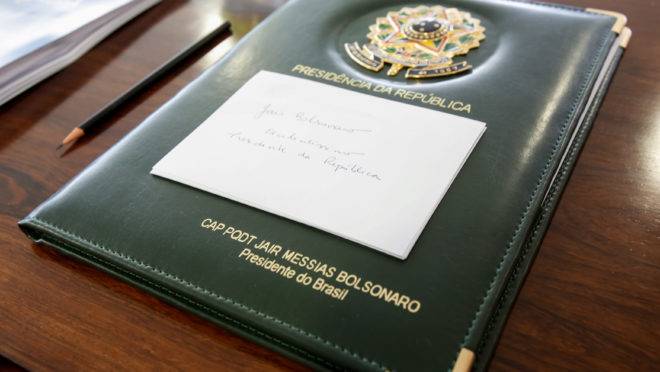 PRESIDÊNCIA DA REPÚBLICA
Jair Bolsonaro
Presidente da República
CAP PQDT JAIR MESSIAS BOLSONARO
Presidente do Brasil